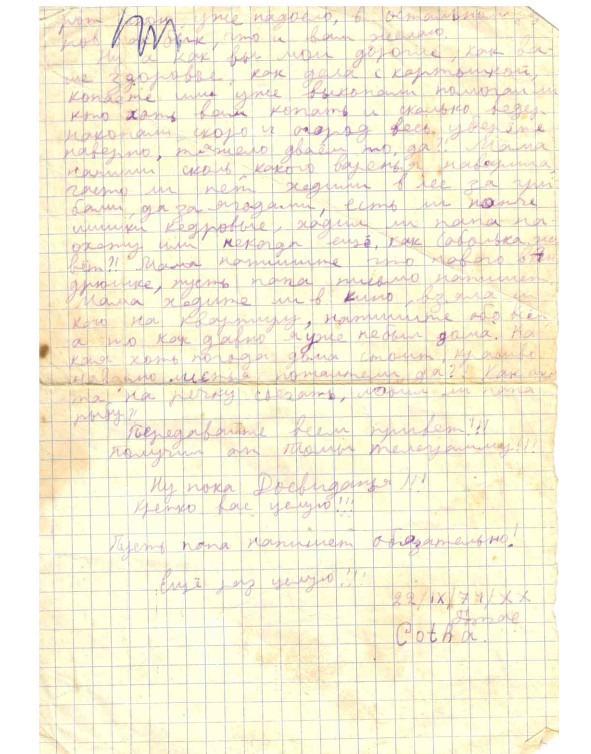 рот уже надоело, в остальном
что и вам желаю.
Ну а как вы мои дорогие, как ва-
ше здоровье, как дела с картошкой,
копаете или уже выкопали помогал ли
кто хоть вам копать и сколько ведер
накопали скоро и огород весь уберёте
наверно, тяжело двоём то, да?! Мама
напиши сколь какого варенья наварила,
часто ли нет ходили в лес за гри-
бами, да за ягодами, есть ли нонче
шишки кедровые, ходил ли папа на
охоту или некогда ещё, как Соболька жи-
вёт?! Мама напишите что нового о Ан-
дрюшке, пусть папа письмо напишет
Мама ходите ли в кино, взяла ли
кого на квартиру, напишите обо всём
а то как давно я уже небыл дома. Ка-
кая хоть погода дома стоит, красиво
наверно листья пожелтели да?! Как охо-
та на речку сбегать, ловил ли папа
рыбу?!
Передавайте всем привет!!!
Получил от Томы телеграмму!!!
Ну пока Досвидания!!!
Крепко вас целую!!!
Пусть папа напишет обязательно!
Ещё раз целую!!!
22/IX/71/XX